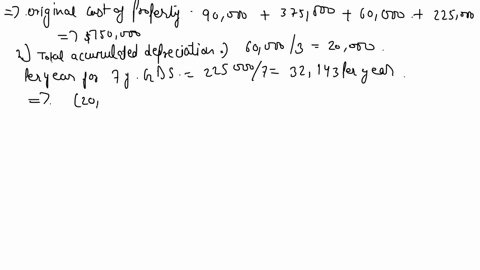 => original cost of Property . 90,000 + 375,000 + 60,000 + 225,000
=> $750,000
2) Total accumulated depreciation :) 60,000/3 = 20,000 .
Per year for 7 y . GDS . = 225 000/7 = 32,143 Per year .
=> . (20,